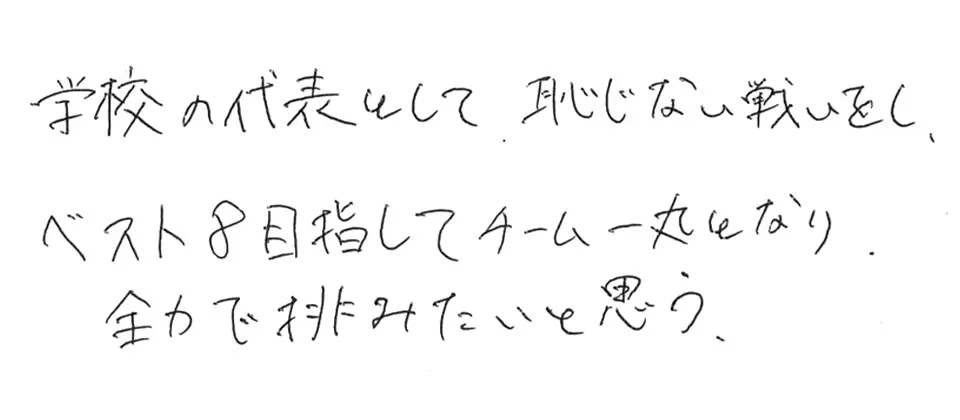 学校の代表として、恥じない戦いをし、
ベスト8目指してチーム一丸となり、
全力で挑みたいと思う、